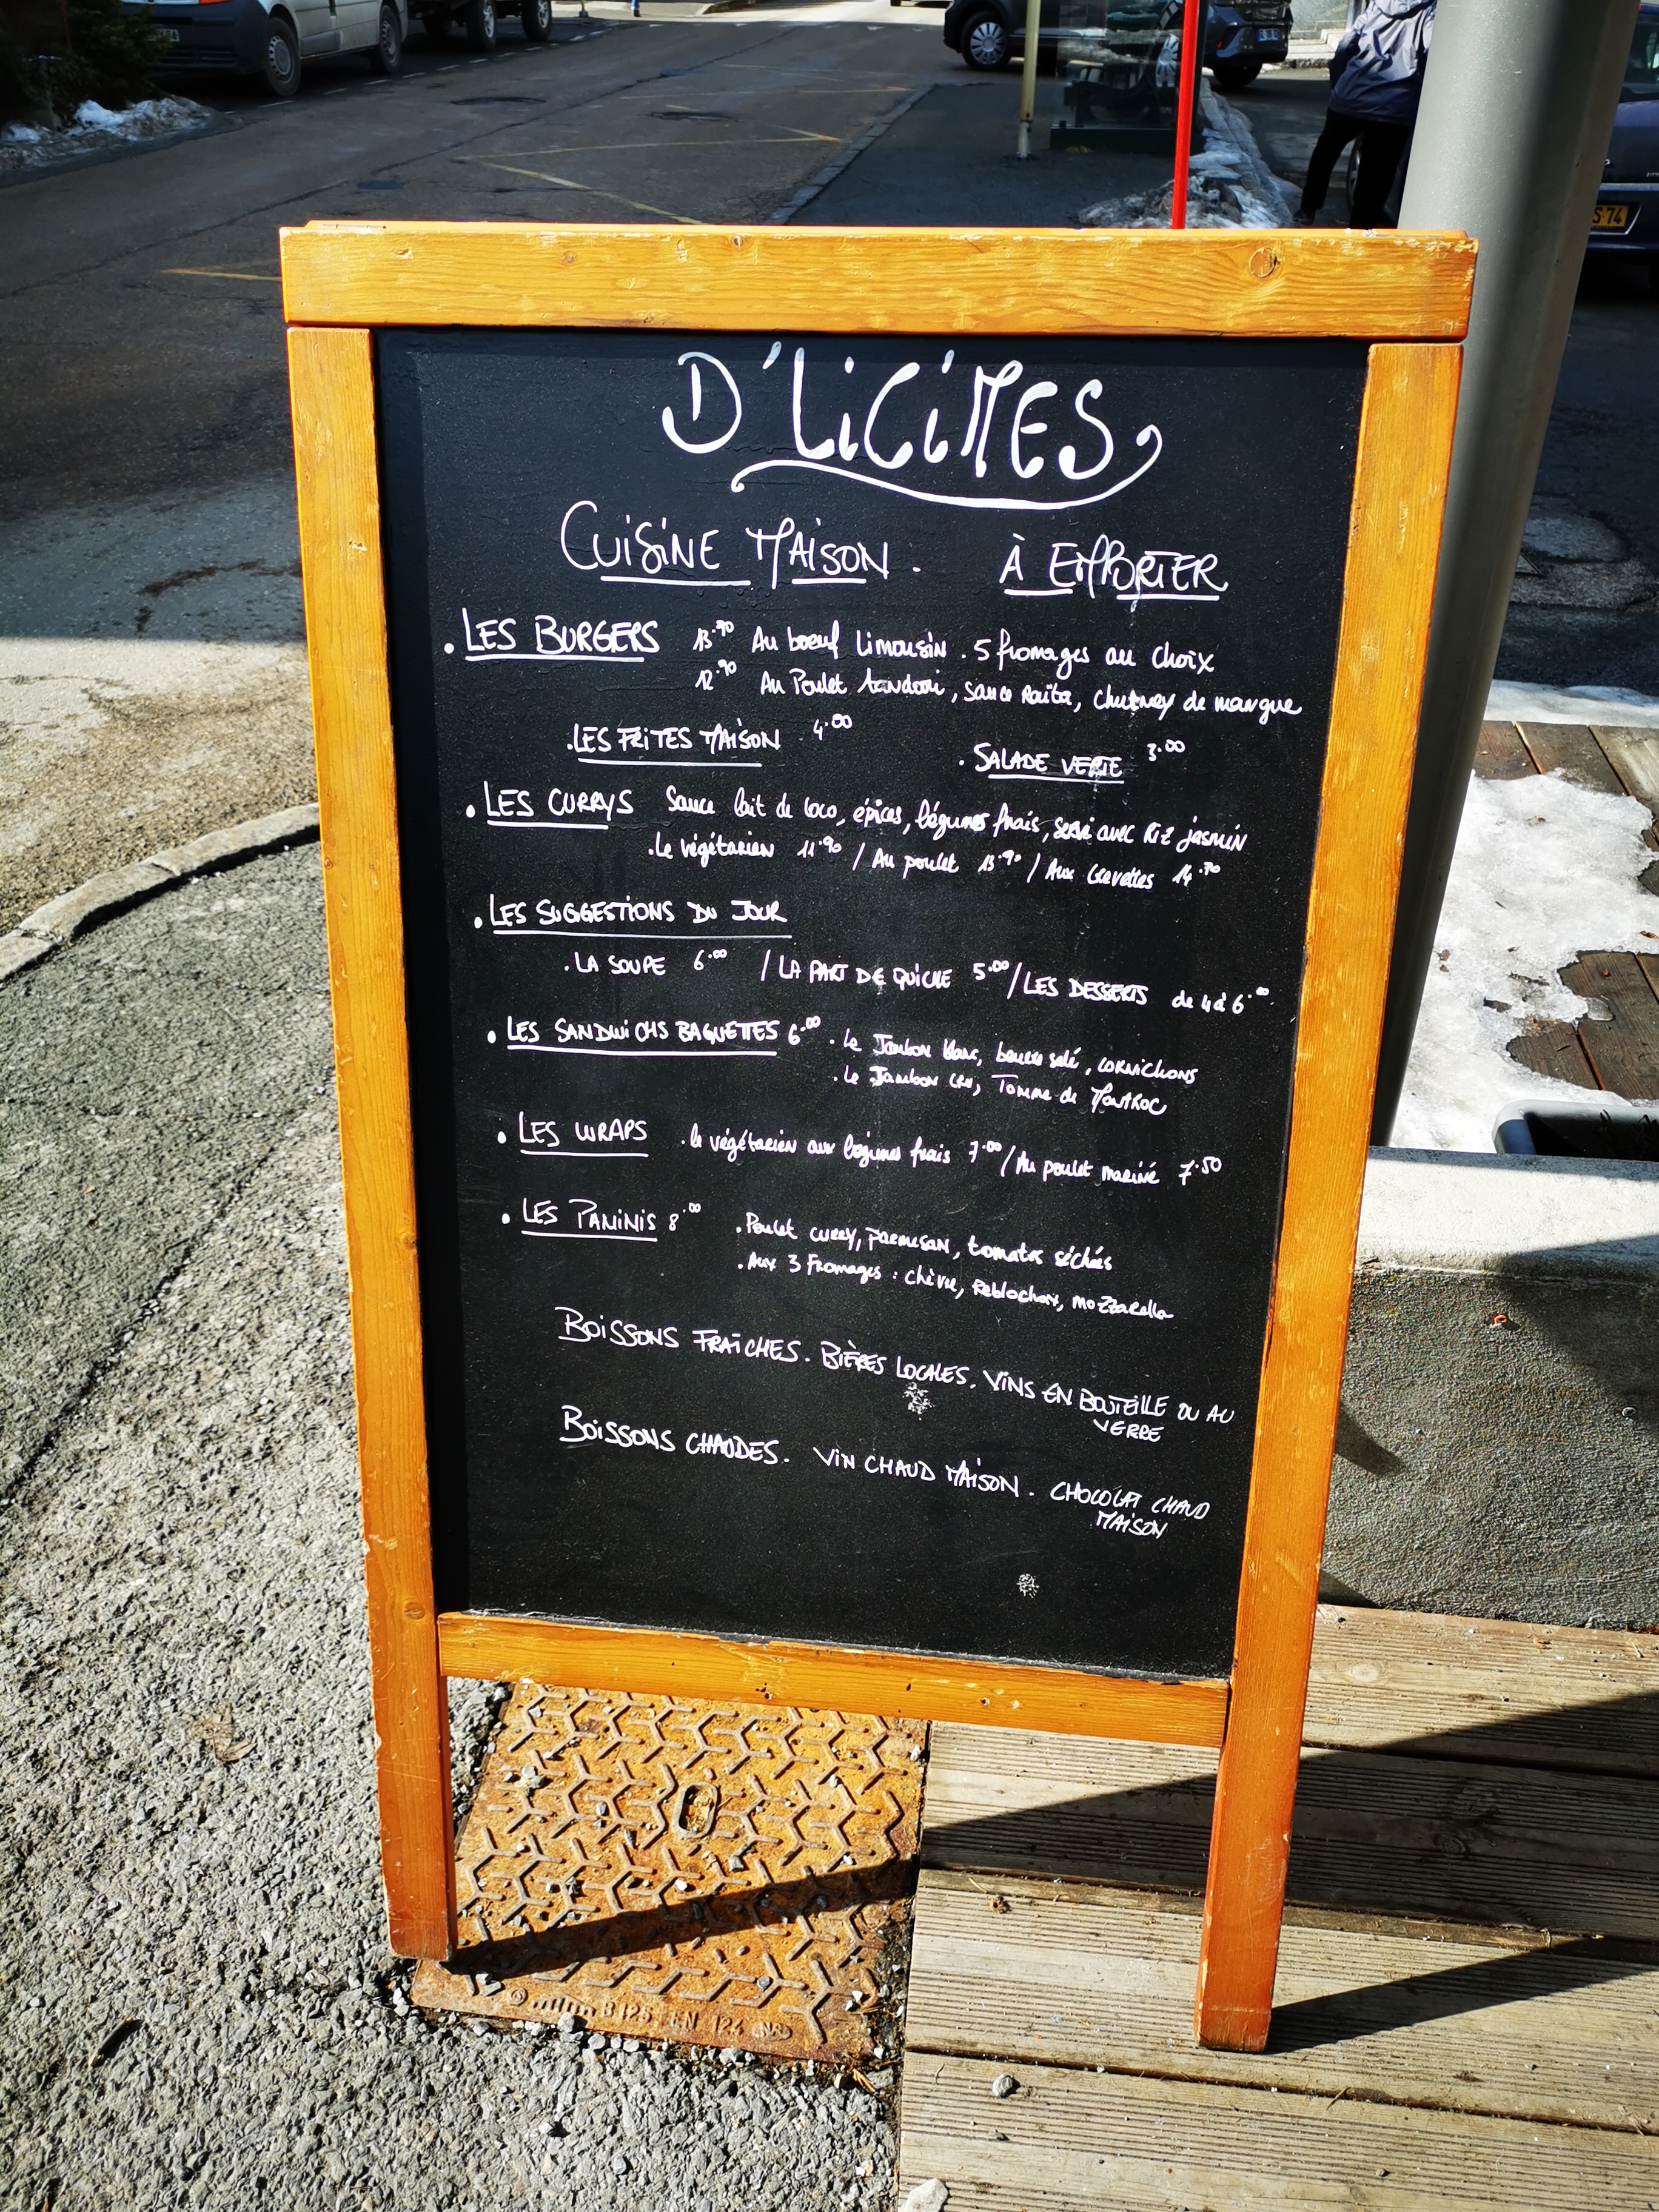 D'LiCiMES
CUiSiNE MAiSON . À EMPORTER
. LES BURGERS 13.90 Au boeuf Limousin . 5 fromages au choix
12.90 Au Poulet tandoori, sauce raïta, chutney de mangue
. LES FRITES MAISON 4.00 . SALADE VERTE 3.00
. LES CURRYS Sauce lait de coco, épices, légumes frais, servi avec Riz jasmin
. Le végétarien 11.90 / Au poulet 13.90 / Aux Crevettes 14.90
. LES SUGGESTIONS DU JOUR
. LA SOUPE 6.00 / LA PART DE QUICHE 5.00 / LES DESSERTS de 4 à 6.00
. LES SANDWICHS BAGUETTES 6.00 . Le Jambon blanc, beurre salé, cornichons
. Le Jambon cru, Tomme de Montroc
. LES WRAPS . le végétarien aux légumes frais 7.00 / Au poulet mariné 7.50
. LES PANINIS 8.00 . Poulet curry, parmesan, tomates séchées
. Aux 3 Fromages : chèvre, Reblochon, mozzarella
BOISSONS FRAÎCHES . BIÈRES LOCALES . VINS EN BOUTEILLE OU AU
VERRE
BOISSONS CHAUDES . VIN CHAUD MAISON . CHOCOLAT CHAUD
MAISON
B125 EN 124
S-74